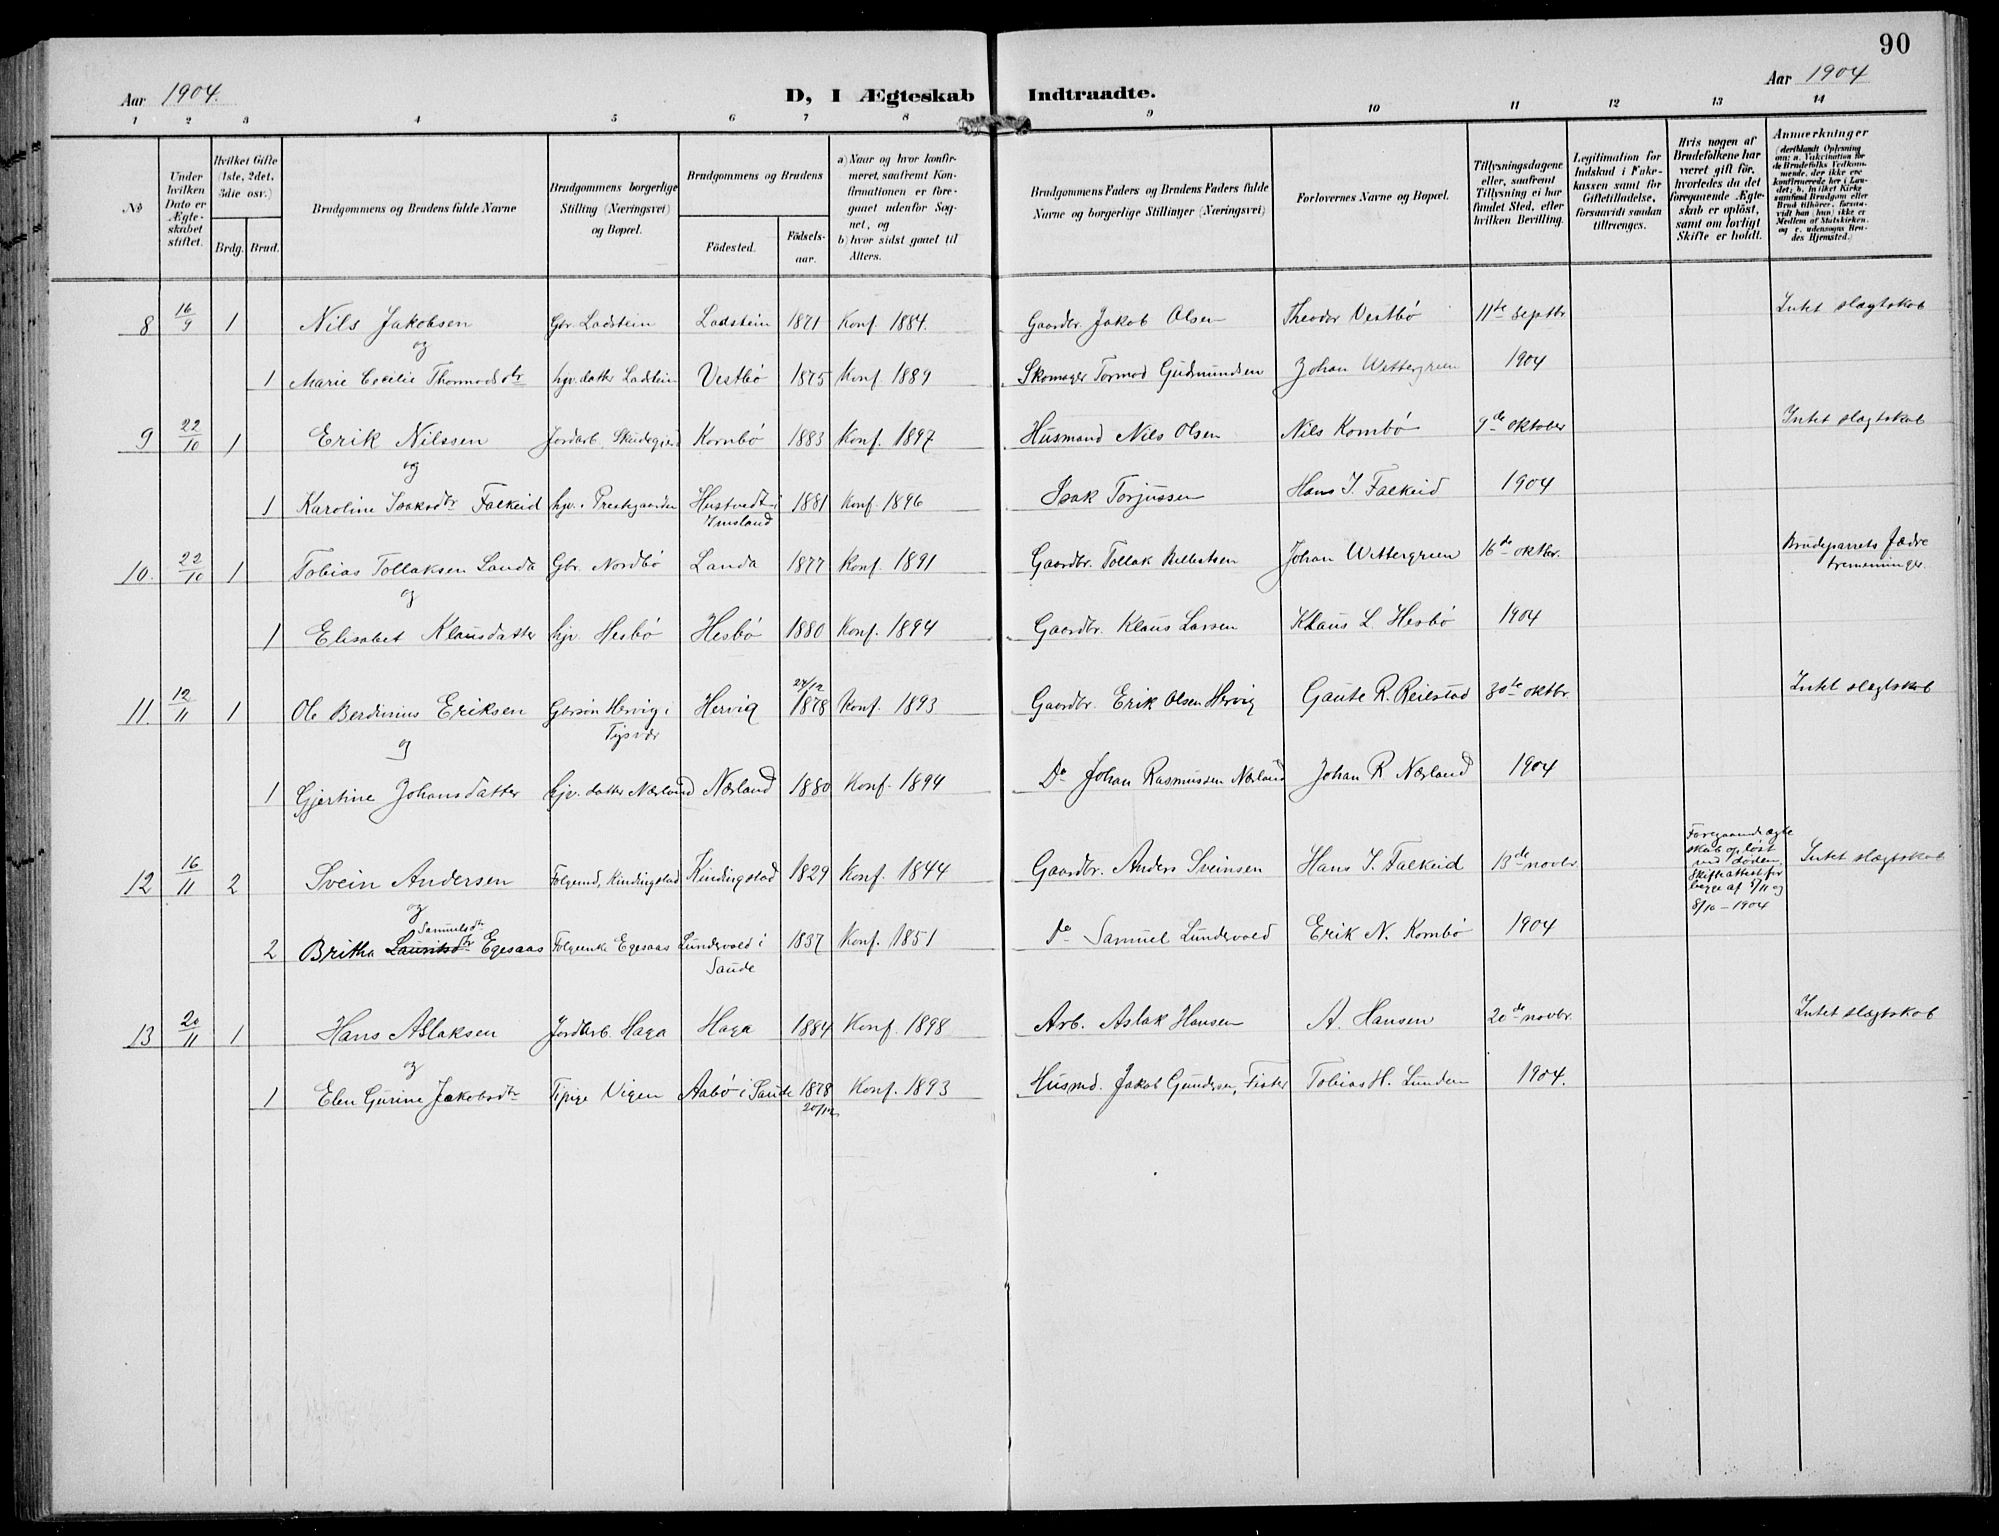 90
Aar 1904.
D, I Ægteskab Indtraadte.
Aar 1904
1 2 3 4 5 6 7 8 9 10 11 12 13 14
No
Under hvilken Dato er Ægteskabet stiftet.
Hvilket Gifte (1ste, 2det, 3die osv.)
Brdg. Brud.
Brudgommens og Brudens fulde Navne
Brudgommens borgerlige Stilling (Næringsvei) og Bopæl.
Brudgommens og Brudens
Födested. Födselsaar.
a) Naar og hvor konfirmeret, saafremt Konfirmationen er foregaaet udenfor Sognet, og
b) hvor sidst gaaet til Alters.
Brudgommens Faders og Brudens Faders fulde Navne og borgerlige Stillinger (Næringsvei)
Forlovernes Navne og Bopæl.
Tillysningsdagene eller, saafremt Tillysning ei har fundet Sted, efter hvilken Bevilling.
Legitimation for Indskud i Enkekassen samt for Giftetilladelse, forsaavidt saadan tiltrænges.
Hvis nogen af Brudefolkene har været gift för, hvorledes da det foregaaende Ægteskab er oplöst, samt om lovligt Skifte er holdt.
Anmærkninger (deriblandt Oplysning om: a. Vakcination for de Brudefolks Vedkommende, der ikke ere konfirmerede her i Landet; b. hvilket Kirkesamfund Brudgom eller Brud tilhörer, forsaavidt han (hun) ikke er Medlem af Statskirken, og c. udensogns Brudes Hjemsted.)
8 16/9 1 Nils Jakobsen Gbr. Ladstein Ladstein 1871 Konf. 1884. Gaardbr. Jakob Olsen Theodor Vestbø 11te Septbr Intet slagtskab
og
1 Marie Cecilie Thormodsdtr hjv. datter Ladstein Vestbø 1875 Konf. 1889 Skomager Tormod Gudmundsen Johan Wettergreen 1904
9 22/10 1 Erik Nilssen Jordarb. Kornbø 1883 Konf. 1897 Husmand Nils Olsen Nils Kornbø 9de oktober Intet slagtskab
og
1 Karoline Isaksdtr Falkeid hjv. i Prestegaarden Hustvedt i Imsland 1881 Konf. 1896 Isak Torjussen Hans I. Falkeid 1904
10. 22/10 1 Tobias Tollaksen Landa Gbr. Nordbø Landa 1877 Konf. 1891 Gaardbr. Tollak Johan Wettergreen 16de oktbr. Brudeparrets Fædre tremeninger.
og
1 Elisabet Klausdatter hjv. Hesbø Hesbø 1880 Konf. 1894 Gaardbr. Klaus Larsen Klaus L. Hesbø 1904
11 12/11 1 Ole Berdinius Eriksen Gbrsøn Hervig i Tysvær Hervig 24/12 1878 Konf. 1893 Gaardbr. Erik Olsen Hervig Gaute R. Reilstad 30te oktbr Intet slagtskab
og
1 Gjertine Johansdatter hjv. datter Nærland Nærland 1880 Konf. 1894 Do Johan Rasmussen Nærland Johan R. Nærland 1904
12 16/11 2 Svein Andersen Folgemd, Kindingstad Kindingstad 1829 Konf. 1844 Gaardbr. Anders Sveinsen Hans I. Falkeid 13de novbr. Foregaaende ægteskab opløst ved døden. Skifteattest for begge af 5/11 og 8/10 - 1904 Intet slagtskab
og
2 Britha Lauritsdtr Samuelsdtr Egesaas Folgeenke Egesaas Lundervold i Saude 1837 Konf. 1851 Do Samuel Lundervold Erik N. Kornbø 1904
13 20/11 1 Hans Aslaksen Jordarb. Haga Haga 1884 Konf. 1898 Arb. Aslak Hansen A. Hansen 20de novbr. Intet slagtskab
og
1 Elen Gurine Jakobsdtr Tjpige Vigen Aabø i Saude 1878 20/12 Konf. 1893 Husmd. Jakob Gundersen, Fister Tobias H. Lunden 1904.